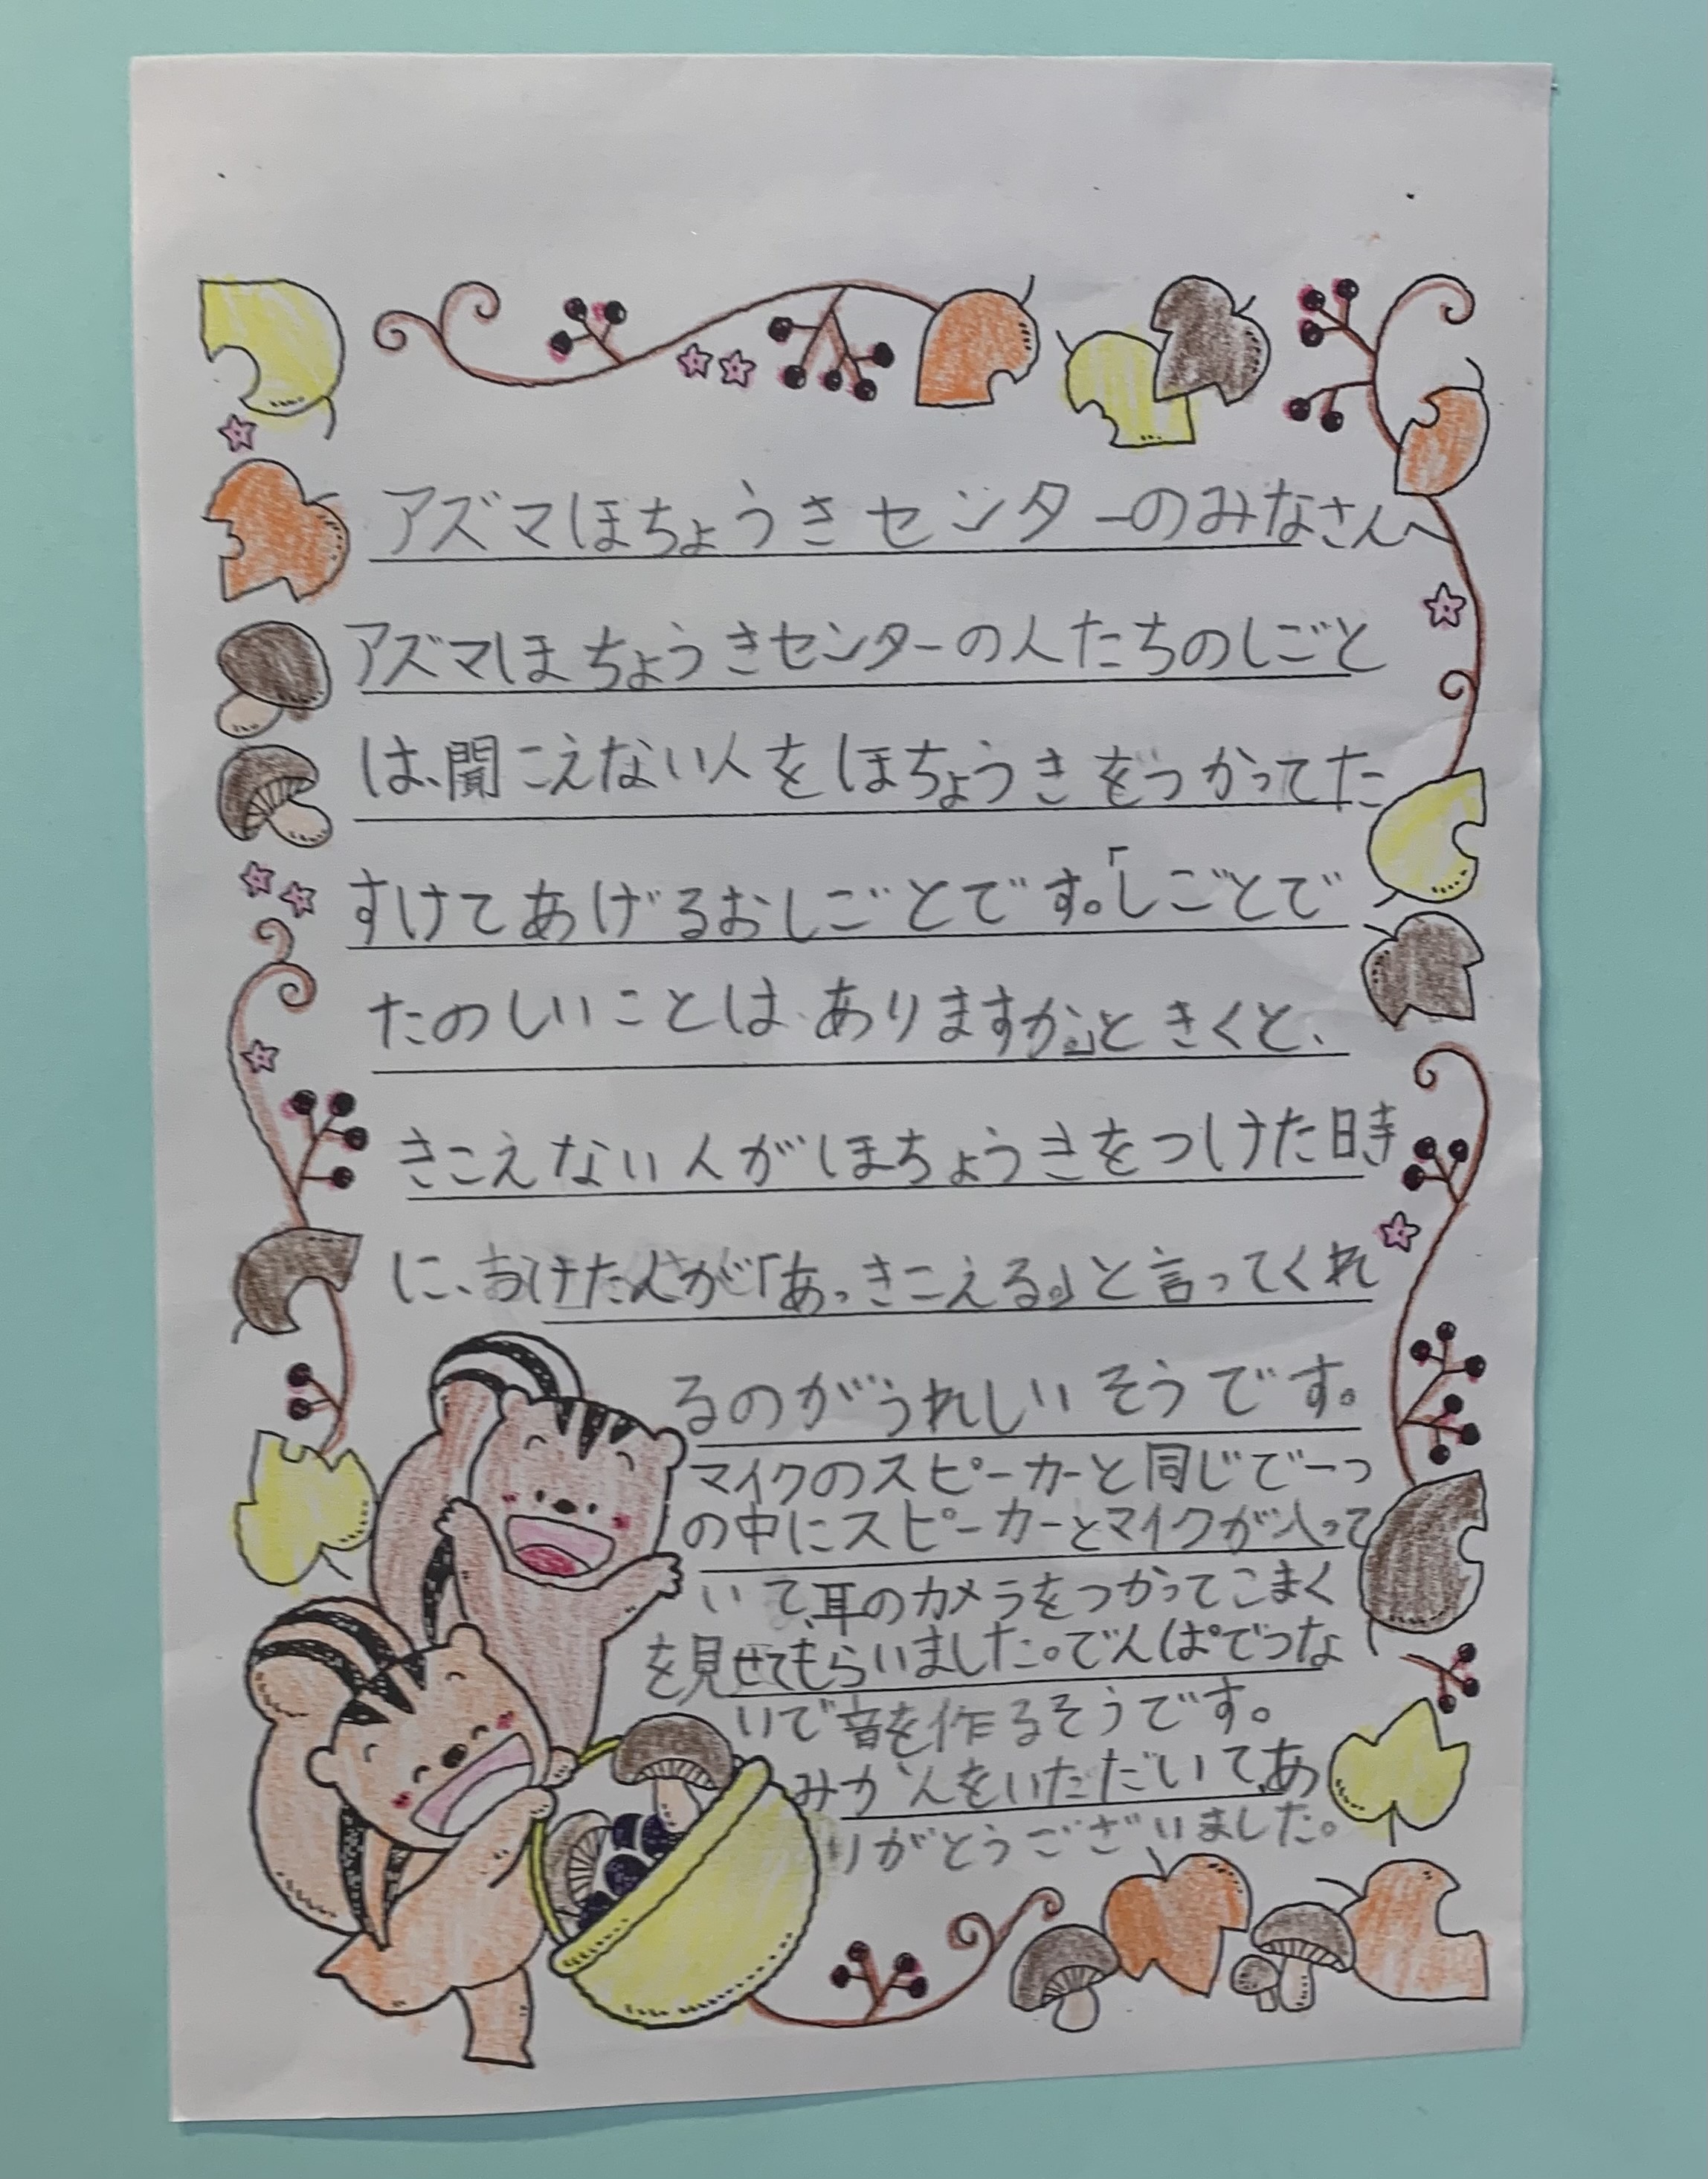 アズマほちょうきセンターのみなさんへ
アズマほちょうきセンターの人たちのしごと
は、聞こえない人をほちょうきをつかってた
すけてあげるおしごとです。「しごとで
たのしいことは、ありますか。」ときくと、
きこえない人がほちょうきをつけた時
に、つけた人が「あっきこえる。」と言ってくれ
るのがうれしいそうです。
マイクのスピーカーと同じで一つ
の中にスピーカーとマイクが入って
いて、耳のカメラをつかってこまく
を見せてもらいました。でんぱでつな
いで音を作るそうです。
みかんをいただいて、あ
りがとうございました。